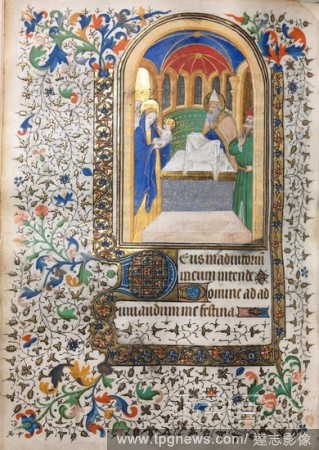 Deus in adiutoriū
meum intende
Domine ad ad
iuuandum me festina
www.tpgnews.com/ 達志影像